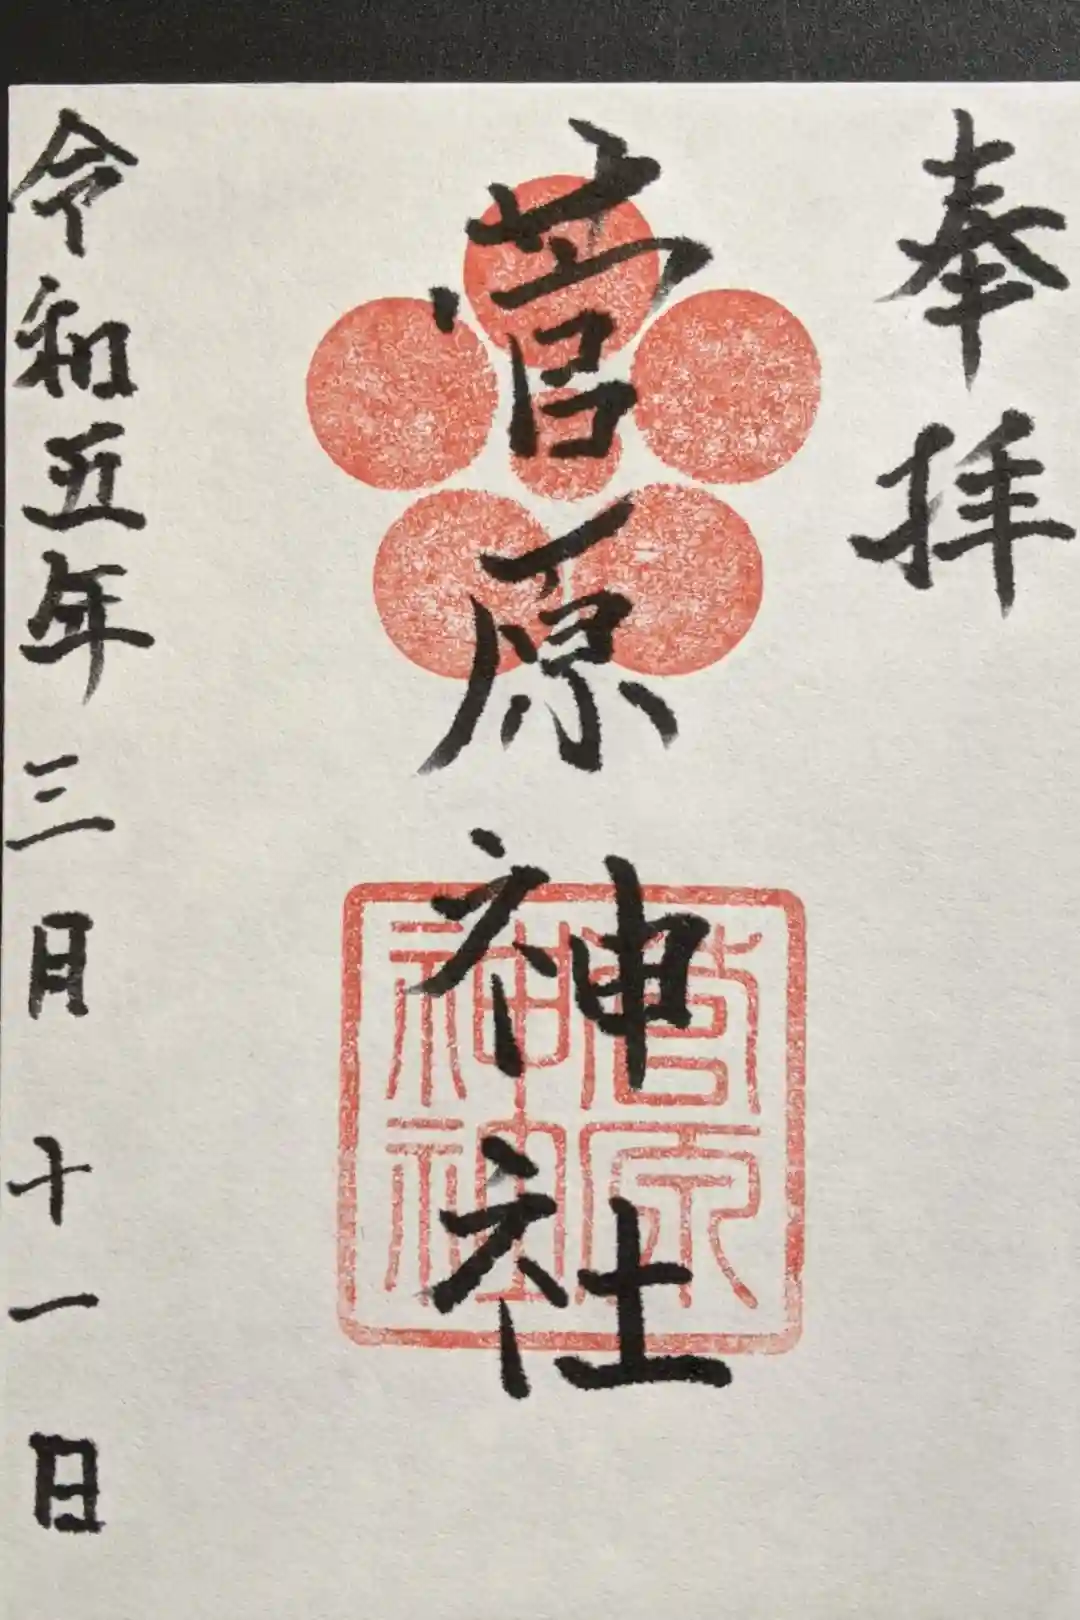 奉拝
菅原神社
菅原
神社
令和五年三月十一日